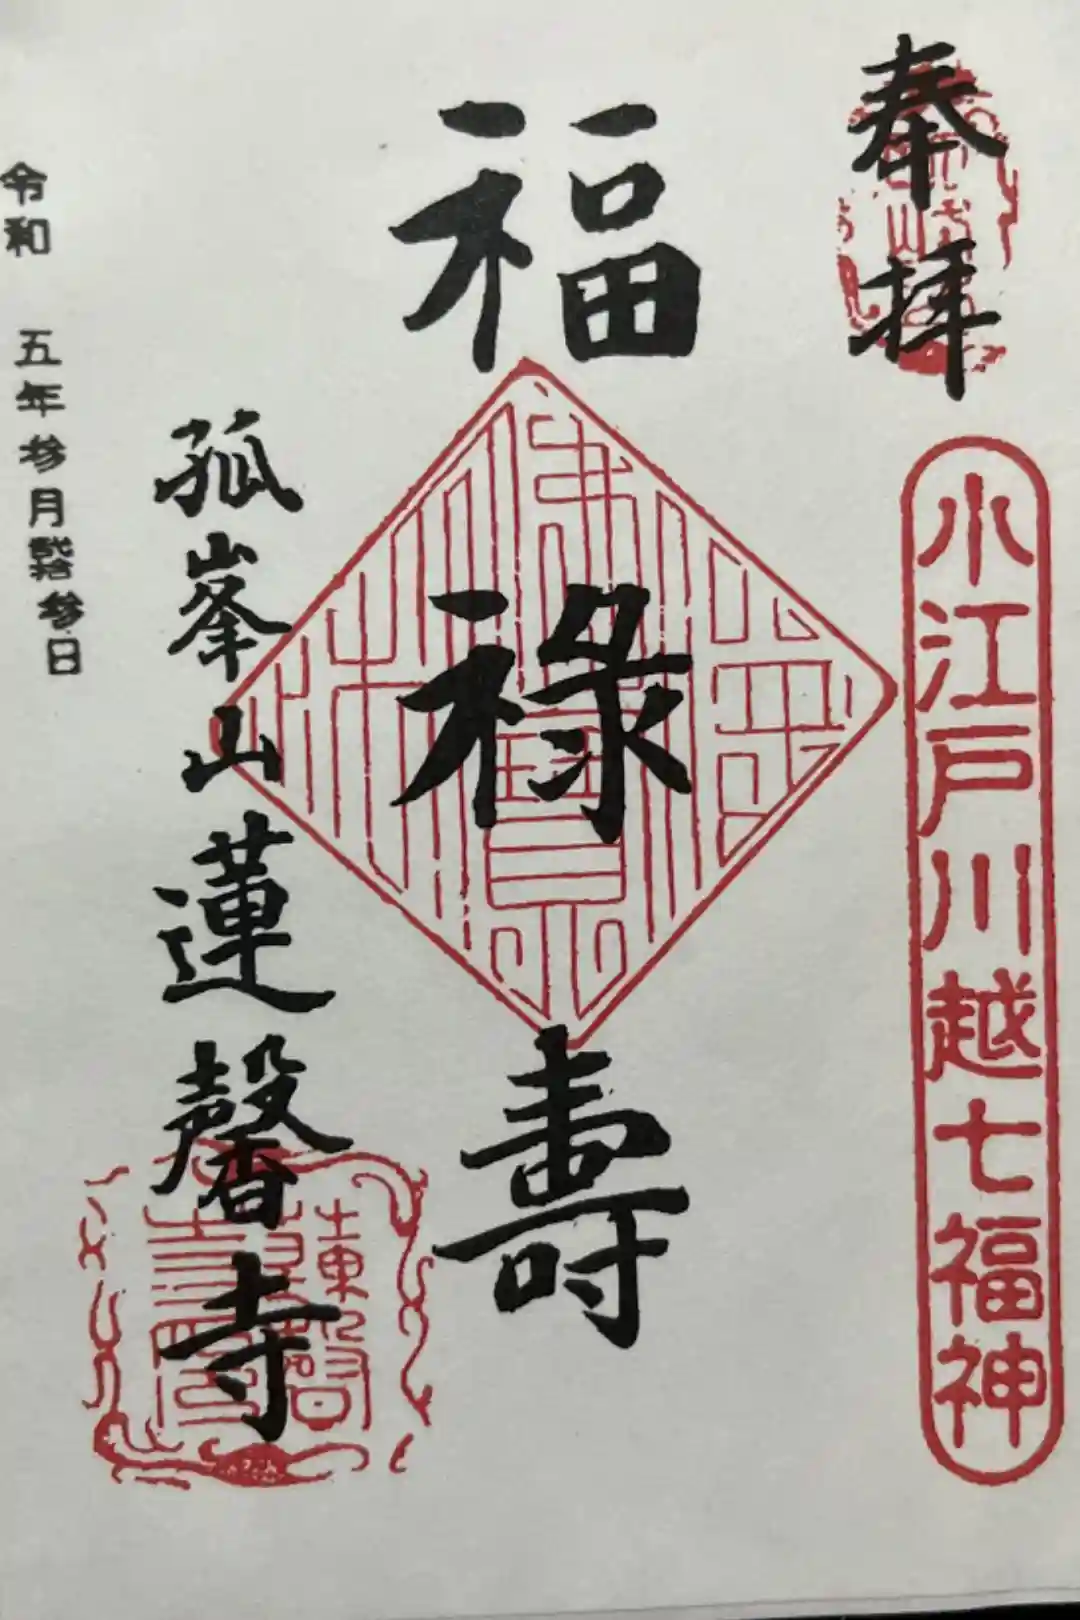 奉拝
小江戸川越七福神
福禄壽
孤峯山蓮馨寺
令和 五年参月弐拾参日